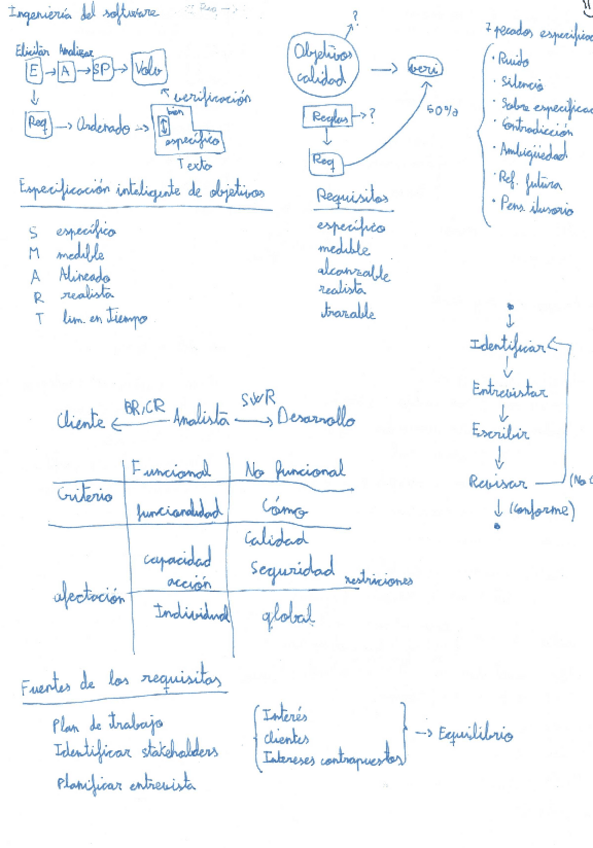 Ingeniería del software
Req →
Elicitar Analizar
E → A → SP → Valo
verificación
Req → Ordenado →
bien
específico
Texto
Objetivos
calidad
?
→ veri
Reglas → ?
50%
Req
7 pecados especifica
· Ruido
· Silencio
· Sobre especificac
· Contradicción
· Ambigüedad
· Ref. futura
· Pens. ilusorio
Especificación inteligente de objetivos
S específico
M medible
A Alineado
R realista
T lim. en tiempo
Requisitos
específico
medible
alcanzable
realista
trazable
Identificar
Entrevistar
Escribir
Revisar
(No
(Conforme)
Cliente ← BR,CR Analista SWR → Desarrollo
Funcional No funcional
Criterio
funcionalidad Cómo
Calidad
capacidad Seguridad restriciones
acción
afectación
Individual global
Fuentes de los requisitos
Plan de trabajo
Identificar stakeholders
Planificar entrevista
Interés
clientes
Intereses contrapuestos
→ Equilibrio